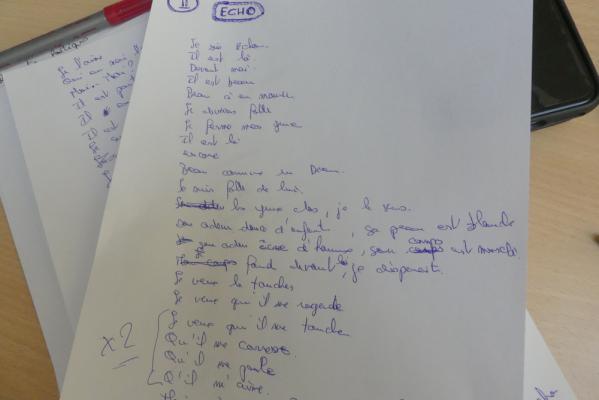 II
ECHO
Je suis Echo.
Il est là
Devant moi.
Il est beau
Beau à en mourir
Je deviens folle
Je ferme mes yeux
Il est là
encore
Beau comme un Dieu.
Je suis folle de lui.
les yeux clos, je le sens.
son odeur douce d'enfant, sa peau est blanche
son odeur âcre d'homme, son corps est musclé.
Je fond devant lui, je disparait.
Je veux le toucher
Je veux qu'il me regarde
Je veux qu'il me touche
x2
Qu'il me caresse.
Qu'il me parle
Q'il m'aime.
Je l'aime
Il est
Il
Il est